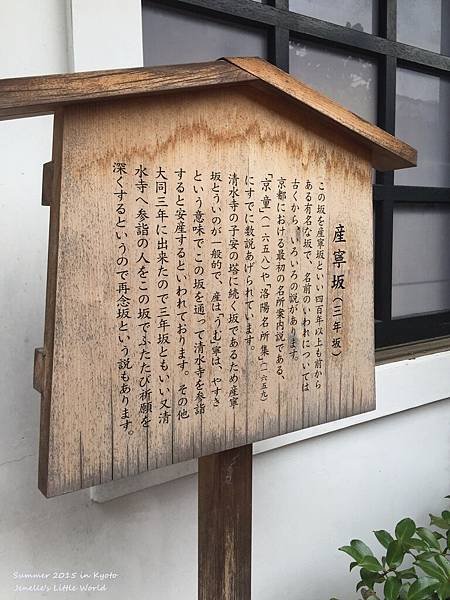 産寧坂(三年坂)
この坂を産寧坂といい四百年以上も前から
ある有名な坂で、名前のいわれについては
古くから、いろいろの説があります。
京都における最初の名所案内説である、
「京童」(一六五八)や「洛陽名所集」(一六五九)
にすでに数説あげられています。
清水寺の子安の塔に続く坂であるため産寧
坂とういのが一般的で、産は、(うむ)寧は、やすき
という意味でこの坂を通って清水寺を参詣
すると安産するといわれております。その他
大同三年に出来たので三年坂ともいい又清
水寺へ参詣の人をこの坂でふたたび祈願を
深くするというので再念坂という説もあります。
Summer 2015 in Kyoto
Jenelle's Little World